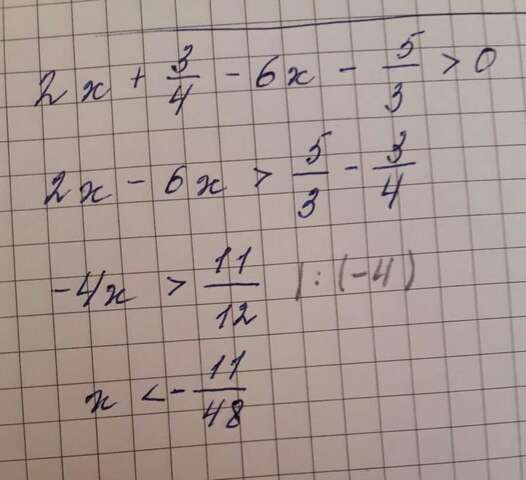 2x + 3/4 - 6x - 5/3 > 0
2x - 6x > 5/3 - 3/4
-4x > 11/12 | : (-4)
x < - 11/48